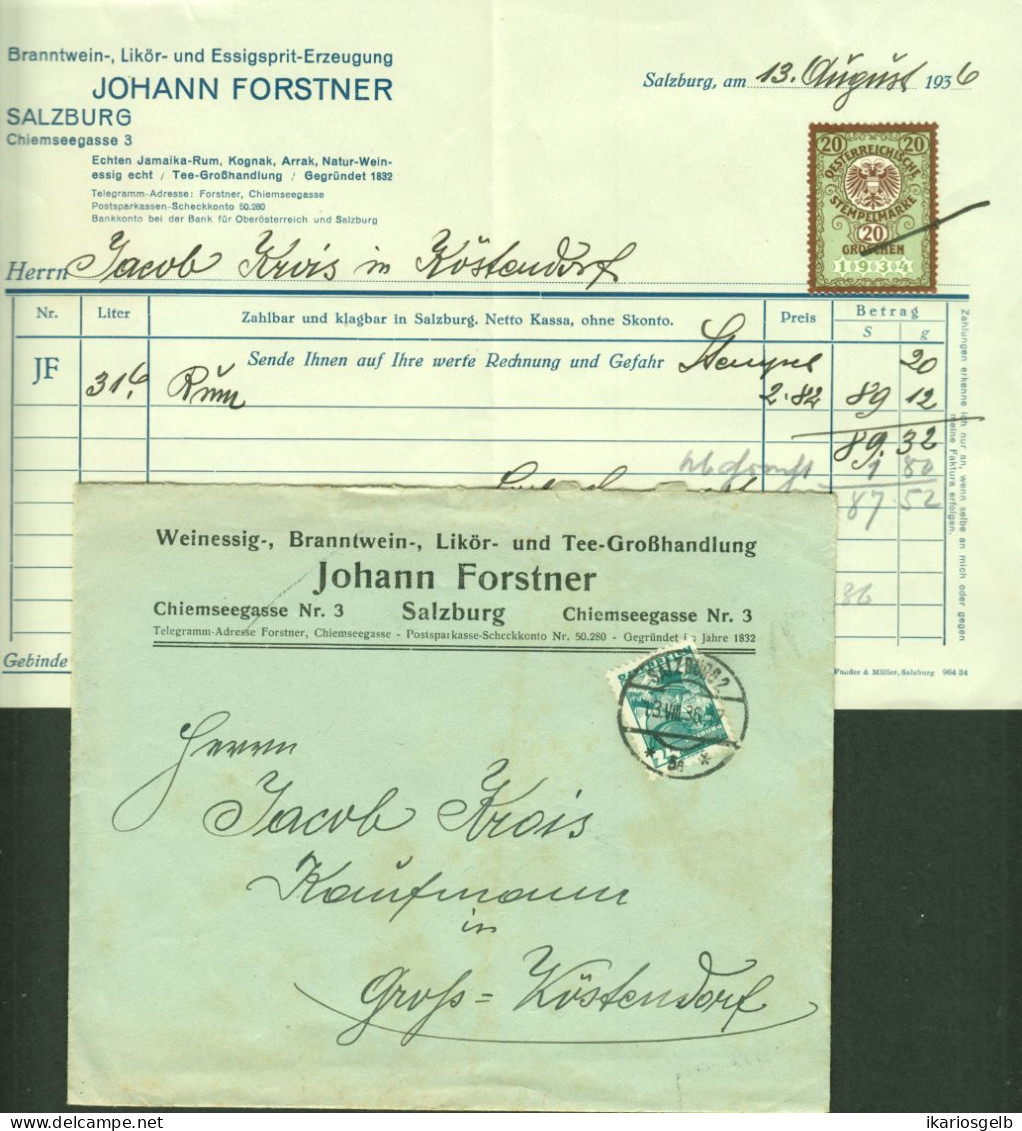 Branntwein-, Likör- und Essigsprit-Erzeugung
JOHANN FORSTNER
SALZBURG
Chiemseegasse 3
Echten Jamaika-Rum, Kognak, Arrak, Natur-Wein-
essig echt / Tee-Großhandlung / Gegründet 1832
Telegramm-Adresse: Forstner, Chiemseegasse
Postsparkassen-Scheckkonto 50.280
Bankkonto bei der Bank für Oberösterreich und Salzburg
Salzburg, am 13. August 1936
20 20
OESTERREICHISCHE
STEMPELMARKE
20
GROSCHEN
1934
Herrn Jacob Krois in Köstendorf
Nr. Liter Zahlbar und klagbar in Salzburg. Netto Kassa, ohne Skonto. Preis Betrag
S g
Sende Ihnen auf Ihre werte Rechnung und Gefahr Stempel 20
JF 31.6 Rum 2.82 89 12
89.32
1 80
87.52
36
Zahlungen erkenne ich nur an, wenn selbe an mich oder gegen
meine Faktura erfolgen.
Gebinde
& Müller, Salzburg 964 34
Weinessig-, Branntwein-, Likör- und Tee-Großhandlung
Johann Forstner
Chiemseegasse Nr. 3 Salzburg Chiemseegasse Nr. 3
Telegramm-Adresse Forstner, Chiemseegasse - Postsparkasse-Scheckkonto Nr. 50.280 - Gegründet im Jahre 1832
SALZBURG 2
13.VIII.36
* 5a *
24
Herrn
Jacob Krois
Kaufmann
in
Groß=Köstendorf
delcampe.net
ikariosgelb